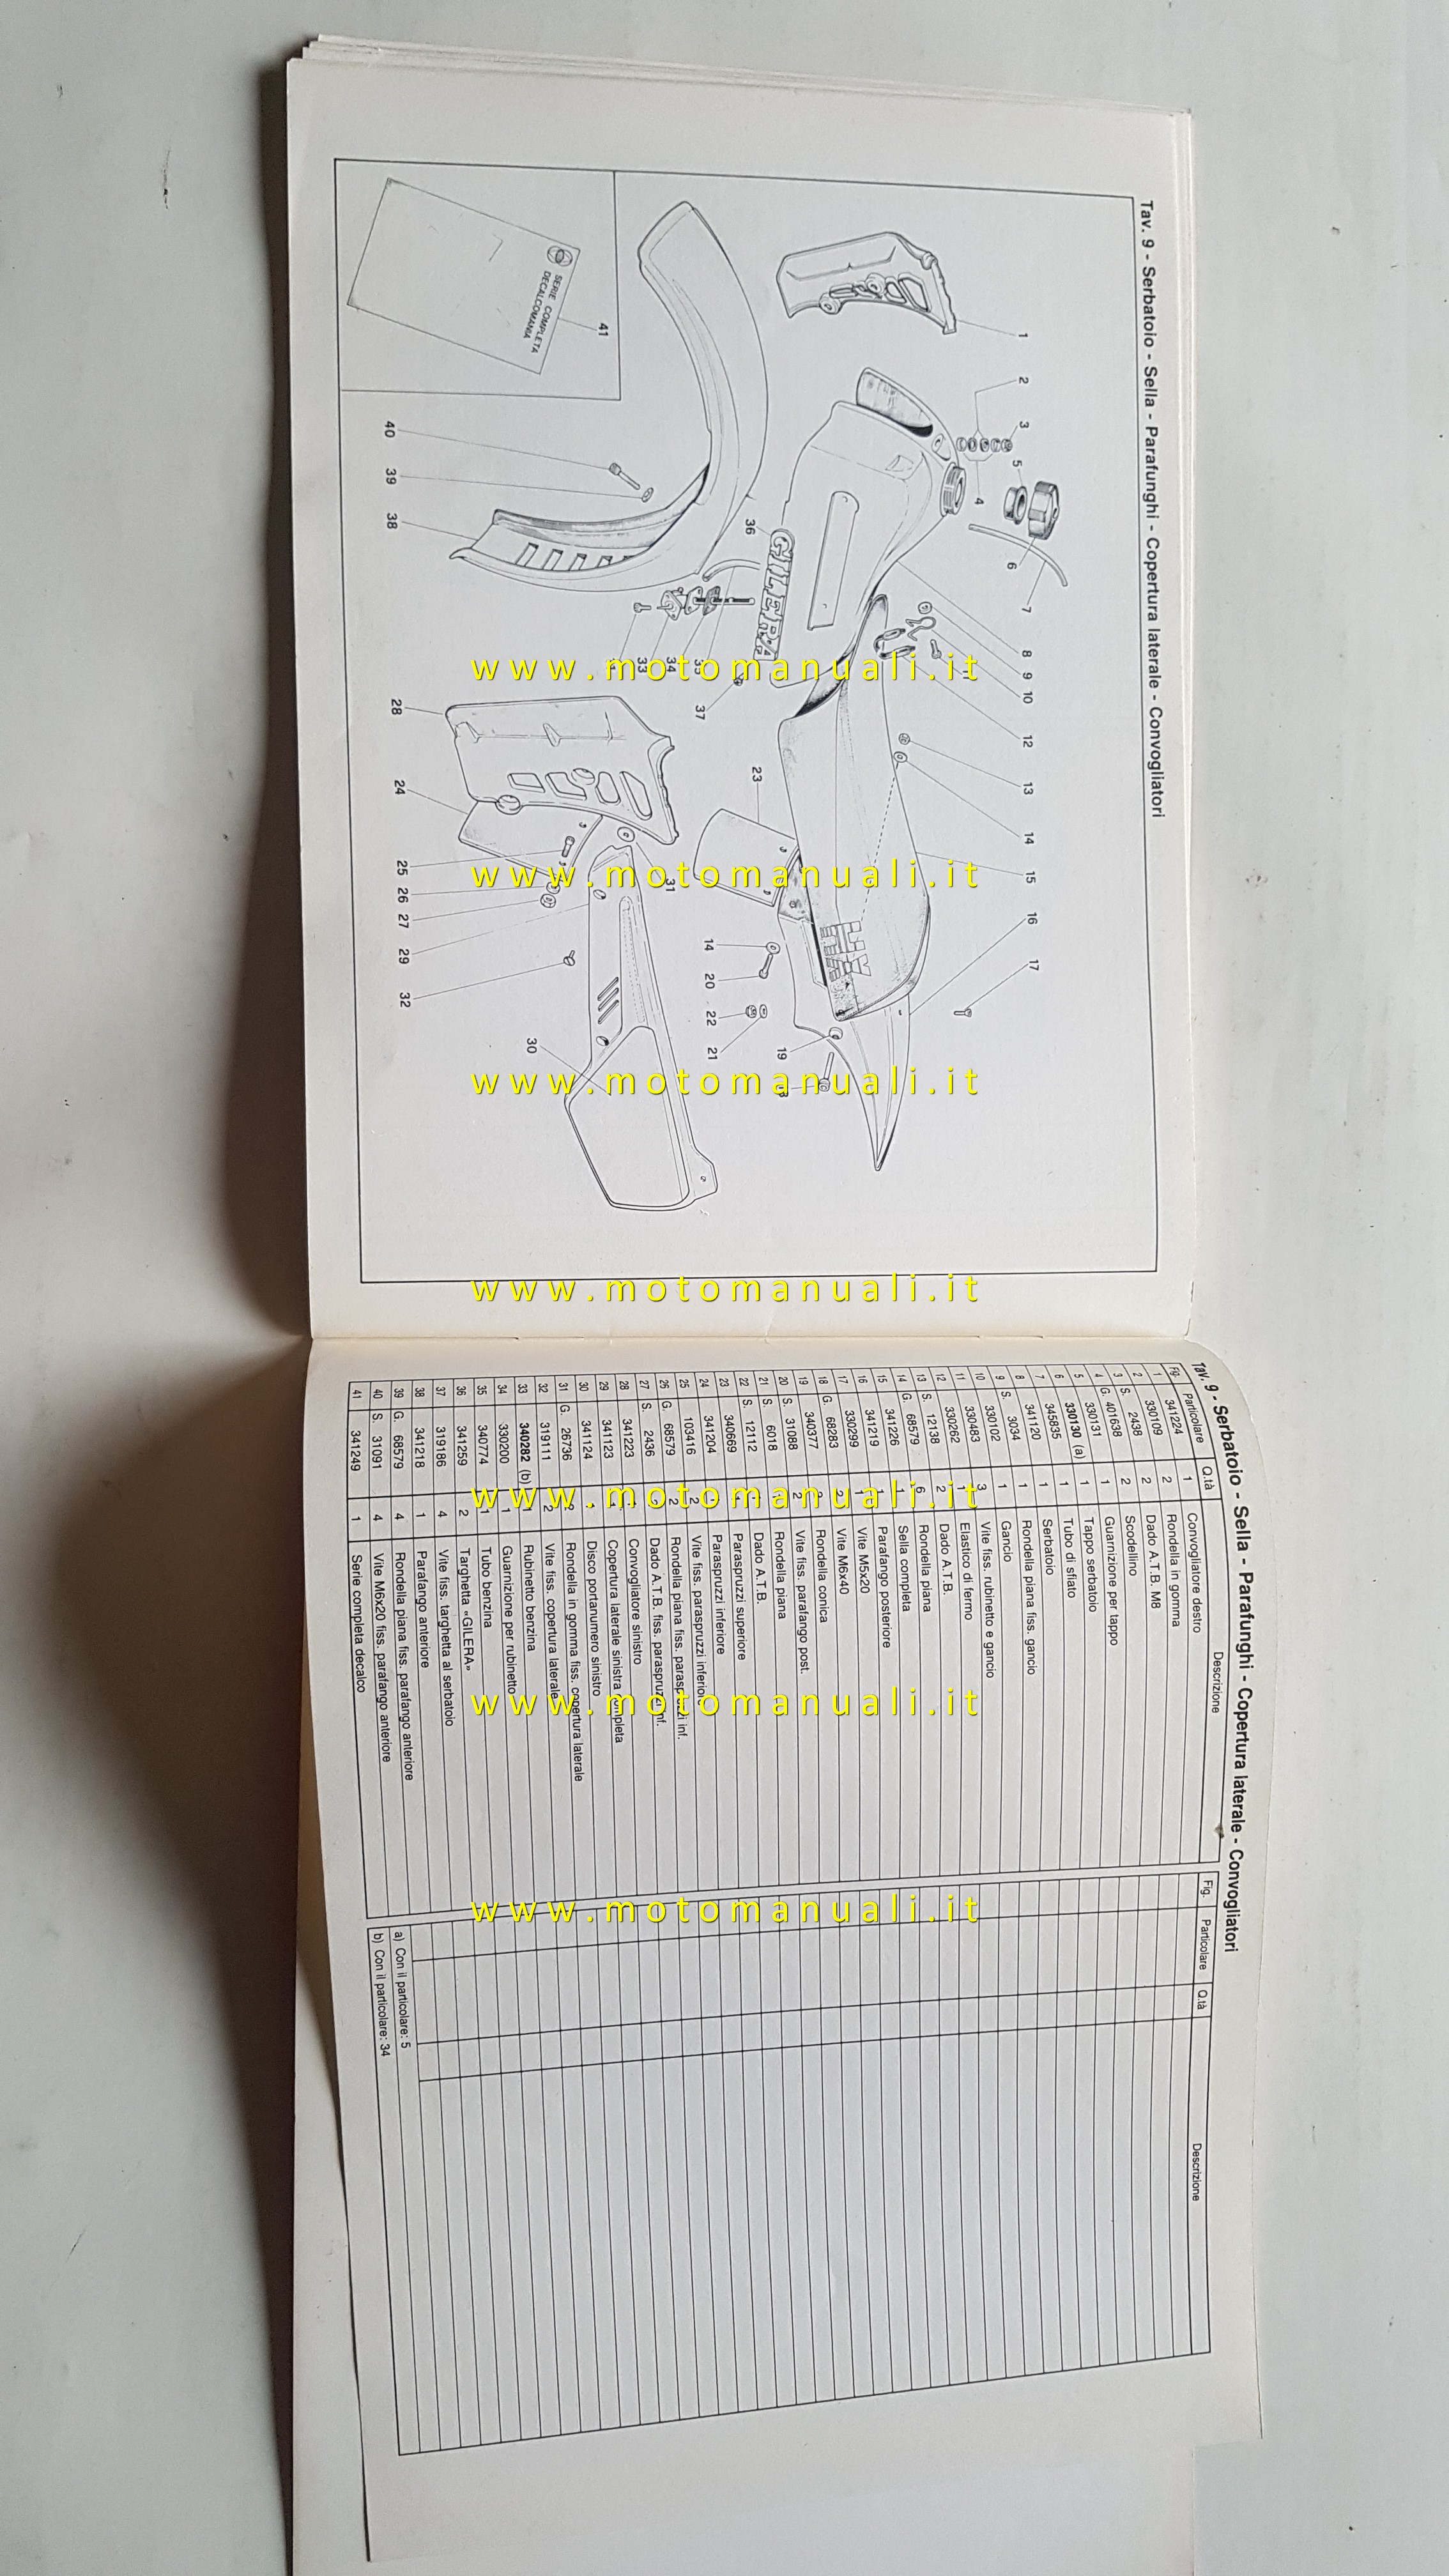 Tav. 9 - Serbatoio - Sella - Parafunghi - Copertura laterale - Convogliatori
1
2
3
4
5
6
7
8
9
10
12
13
14
15
16
17
19
14
20
22
21
23
24
25
26
27
28
29
30
31
32
33
34
36
37
38
39
40
41
SERIE COMPLETA
DECALCOMANIA
GILERA
Tav. 9 - Serbatoio - Sella - Parafunghi - Copertura laterale - Convogliatori
Fig. Particolare Q.tà Descrizione
1 341224 1 Convogliatore destro
2 330109 2 Rondella in gomma
3 S. 2438 2 Dado A.T.B. M8
4 G. 401638 2 Scodellino
5 330131 1 Guarnizione per tappo
6 330130 (a) 1 Tappo serbatoio
7 345835 1 Tubo di sfiato
8 341120 1 Serbatoio
9 S. 3034 1 Rondella piana fiss. gancio
10 330102 1 Gancio
11 330483 3 Vite fiss. rubinetto e gancio
12 330262 1 Elastico di fermo
13 S. 12138 2 Dado A.T.B.
14 G. 68579 6 Rondella piana
15 341226 1 Sella completa
16 341219 1 Parafango posteriore
17 330299 1 Vite M5x20
18 G. 68283 2 Vite M6x40
19 340377 Rondella conica
20 S. 31088 2 Vite fiss. parafango post.
21 S. 6018 Rondella piana
22 S. 12112 Dado A.T.B.
23 340669 Paraspruzzi superiore
24 341204 Paraspruzzi inferiore
25 103416 2 Vite fiss. paraspruzzi inferiore
26 G. 68579 2 Rondella piana fiss. paraspruzzi inf.
27 S. 2436 Dado A.T.B. fiss. paraspruzzi inf.
28 341223 Convogliatore sinistro
29 341123 1 Copertura laterale sinistra completa
30 341124 Disco portanumero sinistro
31 G. 26736 2 Rondella in gomma fiss. copertura laterale
32 319111 2 Vite fiss. copertura laterale
33 340282 (b) 1 Rubinetto benzina
34 330200 1 Guarnizione per rubinetto
35 340774 1 Tubo benzina
36 341259 2 Targhetta «GILERA»
37 319186 4 Vite fiss. targhetta al serbatoio
38 341218 1 Parafango anteriore
39 G. 68579 4 Rondella piana fiss. parafango anteriore
40 S. 31091 4 Vite M6x20 fiss. parafango anteriore
41 341249 1 Serie completa decalco
Fig. Particolare Q.tà Descrizione
a) Con il particolare: 5
b) Con il particolare: 34
www.motomanuali.it
www.motomanuali.it
www.motomanuali.it
www.motomanuali.it
www.motomanuali.it
www.motomanuali.it
www.motomanuali.it